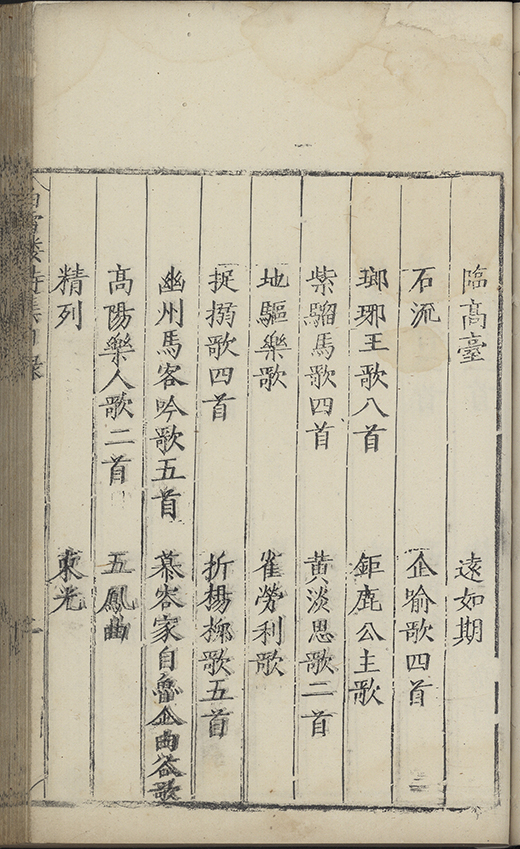 臨高臺　遠如期
石流　企喻歌四首
瑯琊王歌八首　鉅鹿公主歌
紫騮馬歌四首　黃淡思歌二首
地驅樂歌　雀勞利歌
捉搦歌四首　折楊柳歌五首
幽州馬客吟歌五首　慕容家自魯企由谷歌
高陽樂人歌二首　五鳳曲
精列　東光
白雪樓詩集目錄